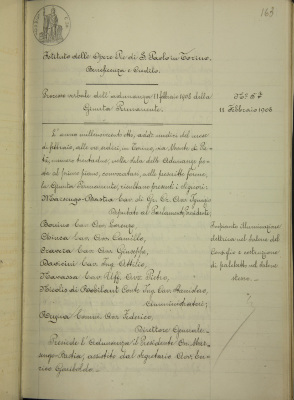 163
Istituto delle Opere Pie di S. Paolo in Torino.
Beneficenza e Credito.
Processo verbale dell'adunanza 11 febbraio 1908 della
Giunta Permanente.
11 Febbraio 1908
L'anno millenovecento otto, addì undici del mese
di febbraio, alle ore sedici, in Torino, via Monte di Pie-
tà, numero trentadue, nella Sala delle Adunanze
al primo piano, convocatasi, nelle prescritte forme,
la Giunta Permanente, risultano presenti i Signori:
Marsengo-Bastia Cav. di Gr. Cr. Avv. Ignazio
Deputato al Parlamento, Presidente;
Cav. Avv. Lorenzo,
Cav. Avv. Camillo,
Cav. Avv. Giuseppe,
Cav. Ing. Attilio,
Cav. Uff. Avv. Pietro,
Nicolis di Robilant Conte Ing. Cav.
Amministratori;
Comm. Avv. Federico,
Direttore Generale.
Presiede l'Adunanza il Presidente On. Mar-
sengo-Bastia, assistito dal Segretario Avv. En-
rico Garibaldo.
Impianto illuminazione
elettrica nel salone del
Consiglio e costruzione
di nel salone